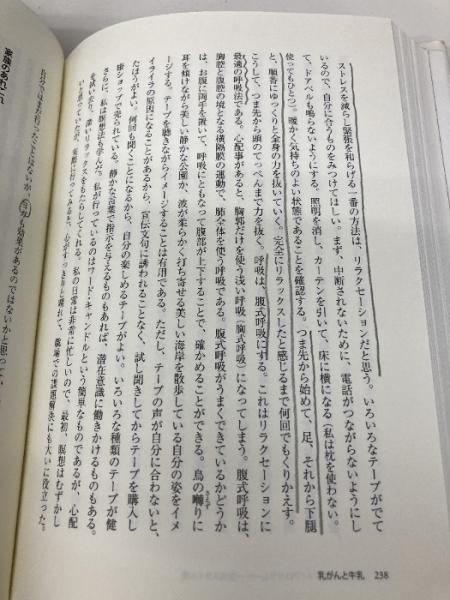 ストレスを減らし緊張を和らげる一番の方法は、リラクセーションだと思う。いろいろなテープがでて
いるので、自分に合うものをみつけてほしい。まず、中断されないために、電話がつながらないようにし
て、ドアベルも鳴らないようにする。照明を消し、カーテンを引いて、床に横になる（私は枕を使わない。
使ってもひとつ）。暖かく気持ちのよい状態であることを確認する。つま先から始めて、足、それから下腿
と、順番にゆっくりと全身の力を抜いていく。完全にリラックスしたと感じるまで何回でもくりかえす。
こうして、つま先から頭のてっぺんまで力を抜く。呼吸は、腹式呼吸にする。これはリラクセーションに
最適の呼吸法である。心配事があると、胸郭だけを使う浅い呼吸（胸式呼吸）になってしまう。腹式呼吸は、
胸腔と腹腔の境となる横隔膜の運動で、肺全体を使う呼吸である。腹式呼吸がうまくできているかどうか
は、お腹に両手を置いて、呼吸にともなって腹部が上下することで、確かめることができる。鳥の囀りに
耳を傾けながら美しい静かな公園か、波が柔らかく打ち寄せる美しい海岸を散歩している自分の姿をイメ
ージする。テープを聴きながらイメージすることは有用である。ただし、テープの声が自分に合わないと、
イライラの原因になることがあるから、宣伝文句に誘われることなく、試し聞きしてからテープを購入し
たほうがよい。何回も聞くことになるから、自分の楽しめるテープがよい。いろいろな種類のテープが健
康ショップで売られている。静かな言葉で指示を与えるものもあれば、潜在意識に働きかけるものもある。
さらに、私は瞑想法も学んだ。私が行っているのはワード・キャンドルという簡単なものであるが、心配
を拭い去り、深いリラックスをもたらしてくれる。私の日常は非常に忙しいので、最初、瞑想はむずかし
いと思っていたが、実際に行ってみると、心がすっきりと晴れて、職場での課題解決にも大いに役立った。
自分ではまだ行ったことはないが、ヨガも効果があるのではないかと思ってい
乳がんと牛乳 238